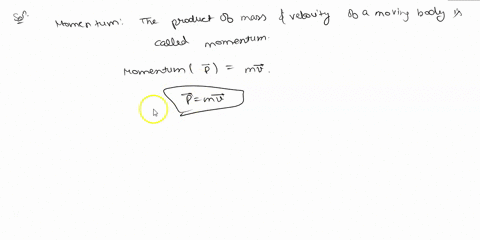 Sol: Momentum: The product of mass & velocity of a moving body is
called momentum.
Momentum ( p⃗ ) = mv⃗.
p⃗ = mv⃗